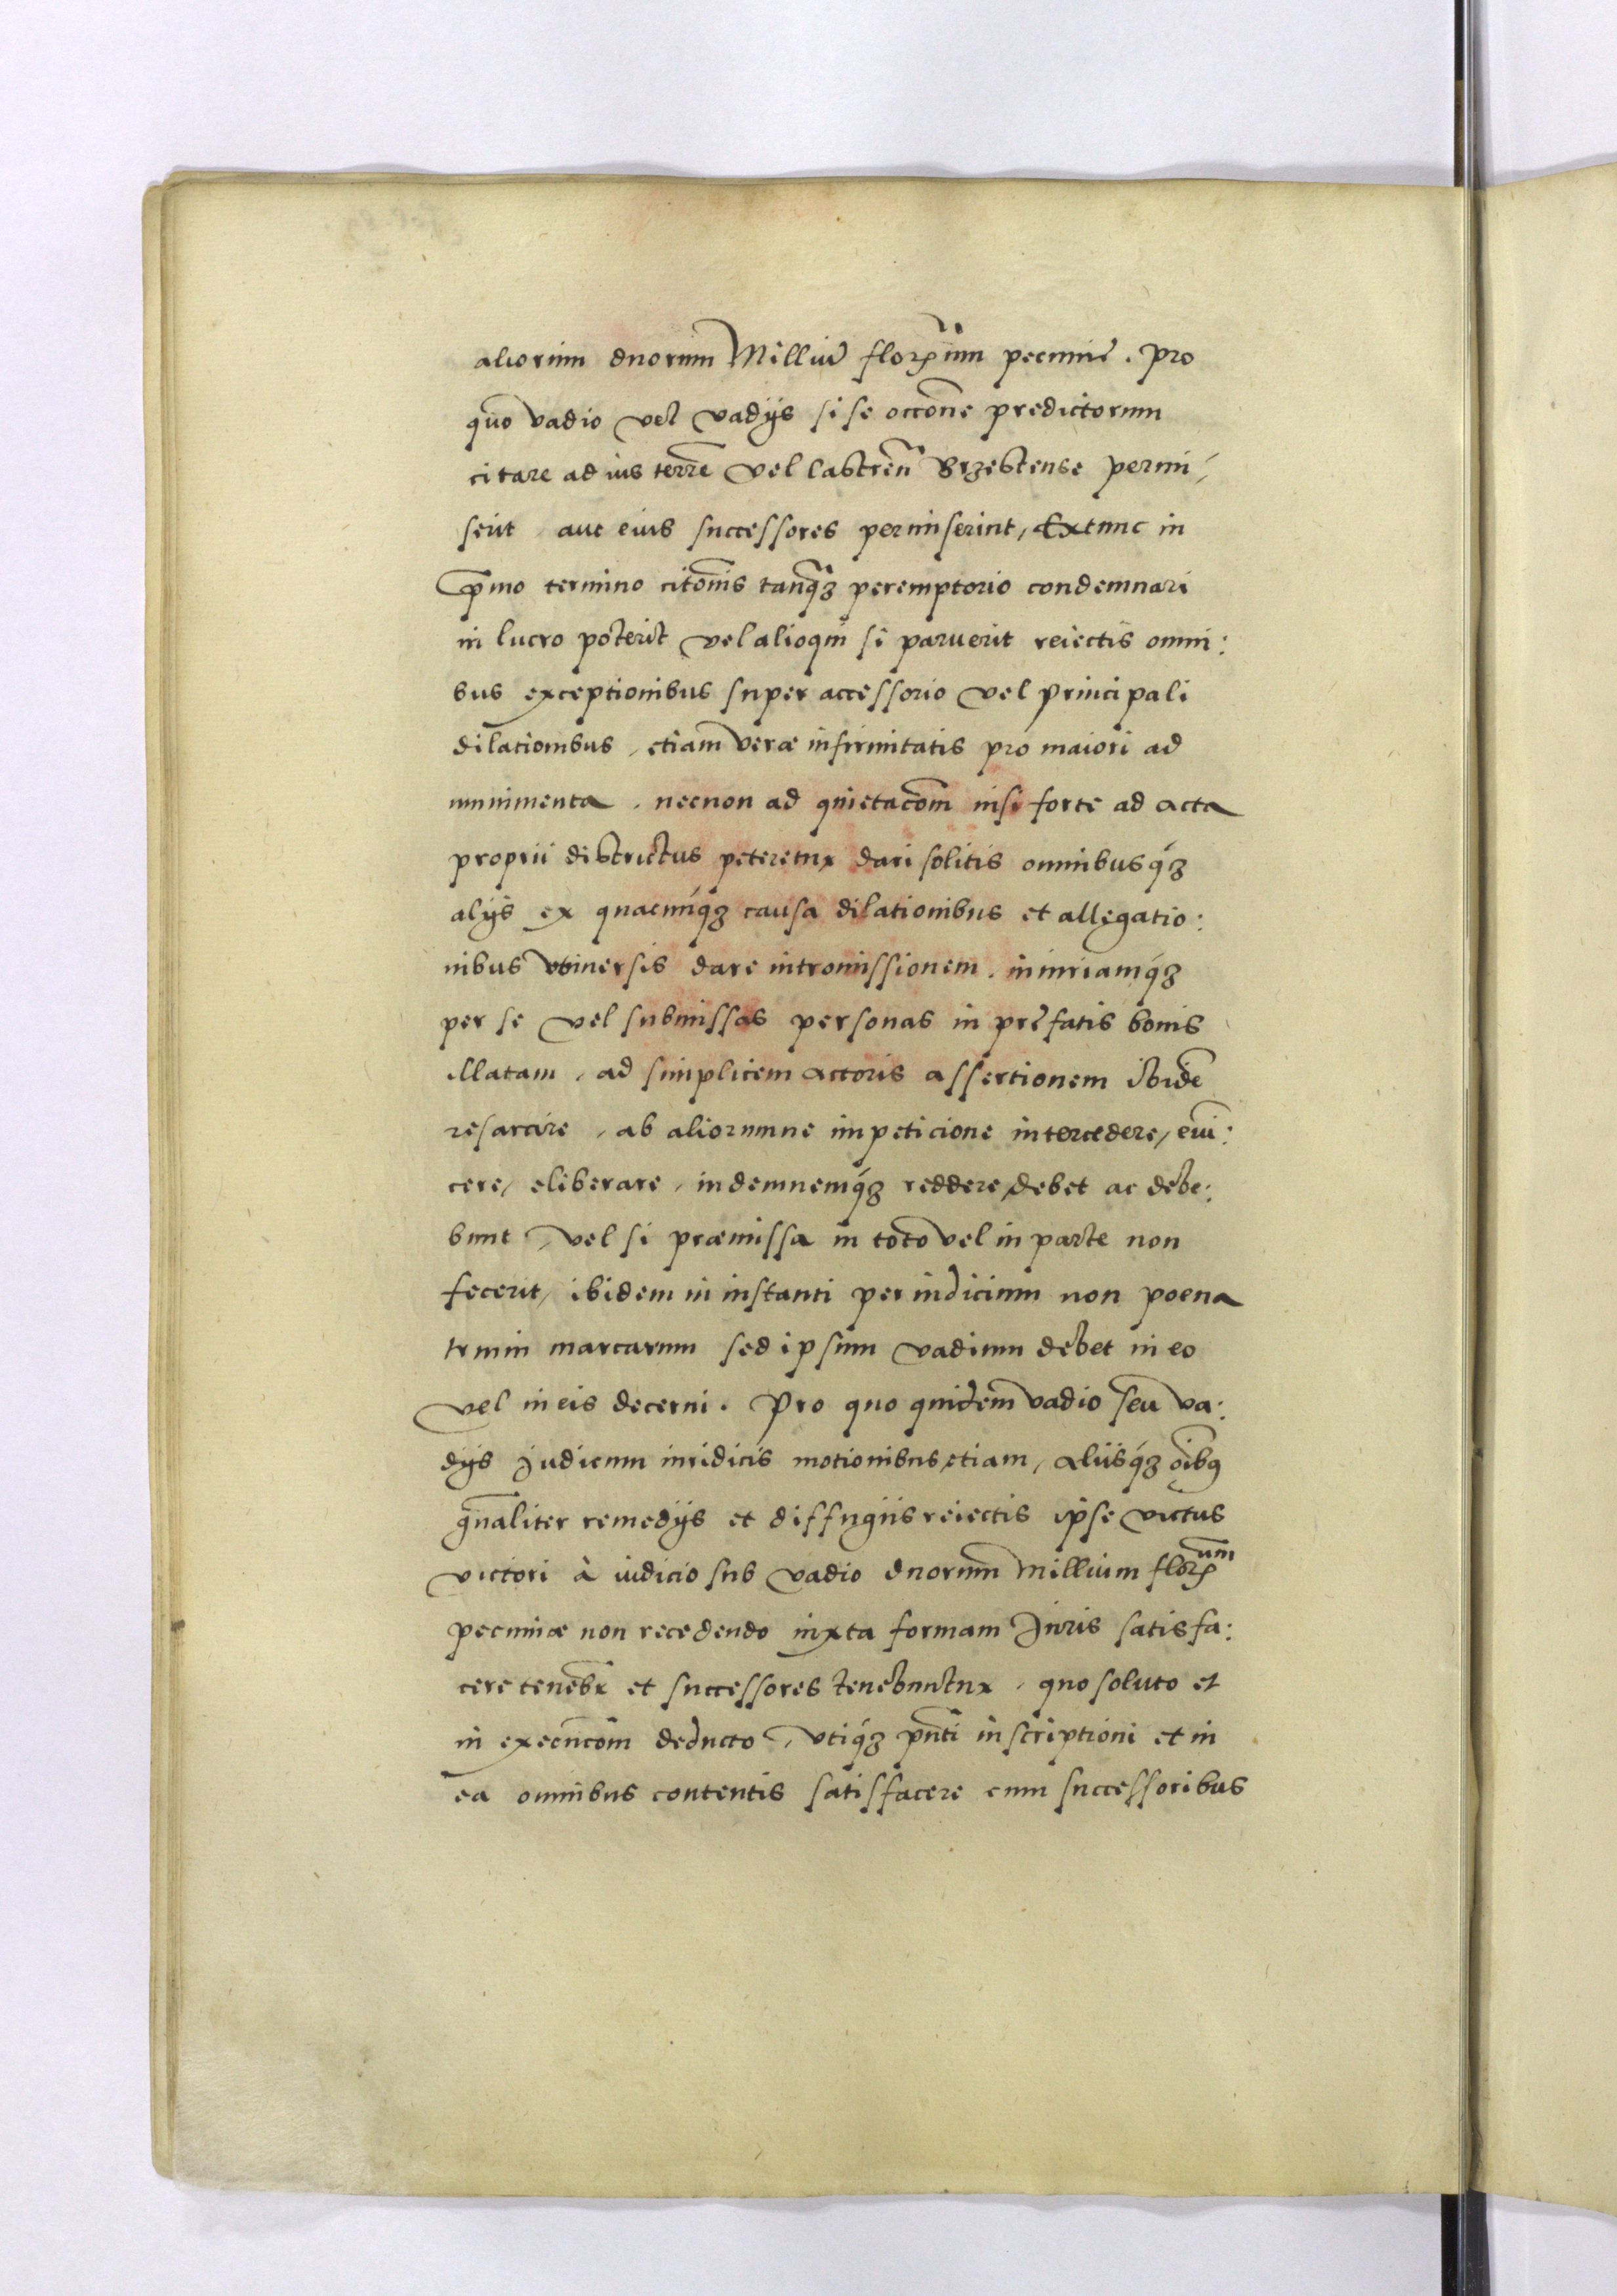 aliorum duorum Milliū florꝝ um pecunię. pro
quo vadio vel vadijs si se occōne predictorum
citare ad ius terrē vel Castreñ Brzestense permi,
serit, aut eius successores permiserint, Extunc in
pmo termino citōnis tanqꝫ peremptorio condemnari
in lucro poterit vel alioqui si paruerit reiectis omni:
bus exceptionibus super accessorio vel principali
dilationibus, etiam veræ infirmitatis pro maiori ad
munimenta, necnon ad quietacōm nisi forte ad acta
proprii districtus peteretur dari solitis omnibusqꝫ
alijs ex quacunqꝫ causa dilationibus et allegatio:
nibus vniuersis dare intromissionem, iniuriamqꝫ
per se vel submissas personas in pręfatis bonis
illatam, ad simplicem actoris assertionem ibidē
resarcire, ab aliorumne impeticione intercedere, eui:
cere, eliberare, indemnemqꝫ reddere debet ac debe:
bunt, vel si præmissa in toto vel in parte non
fecerit, ibidem in instanti per iudicium non poena
trium marcarum sed ipsum vadium debet in eo
vel in eis decerni. Pro quo quidem vadio seu va:
dijs Judicum iuridicis motionibus etiam, aliisqꝫ oībꝯ
gn̄aliter remedijs et diffugiis reiectis ipse victus
victori à iudicio sub vadio duorum millium florꝝ um
pecuniæ non recedendo iuxta formam Juris satisfa:
cere tenebr̄ et successores tenebuntur, quo soluto et
in execucōm deducto, vtiqꝫ pn̄ti inscriptioni et in
ea omnibus contentis satisfacere cum successoribus